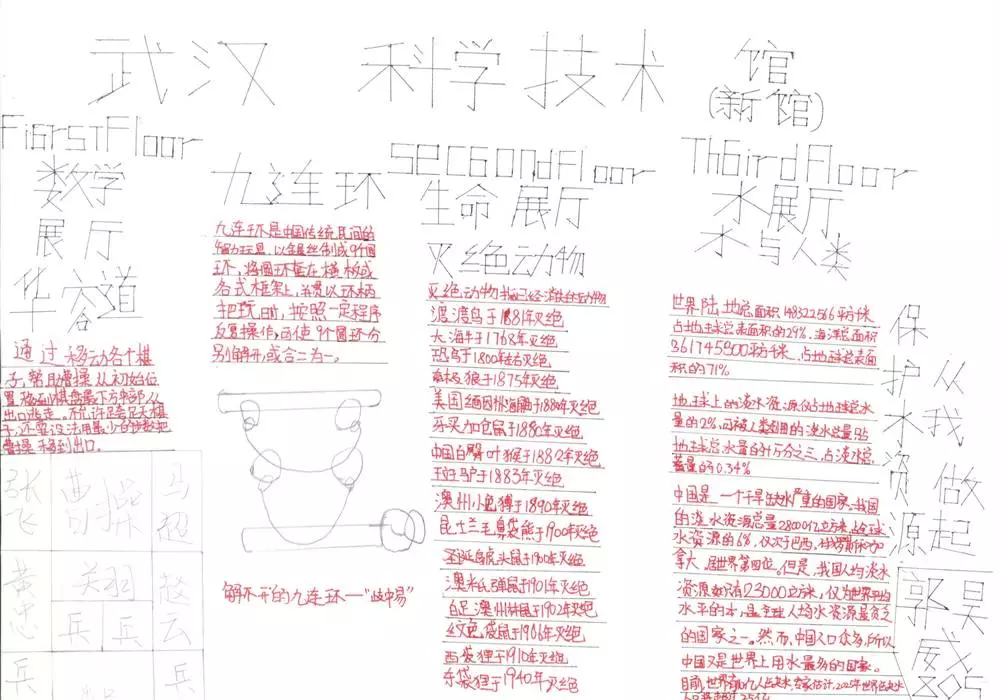 武汉 科学技术 馆
(新馆)
FigrstFloor
数学
展厅
华容道
通过移动各个棋
子,帮助曹操从初始位
置移到棋盘最下方中部从
出口逃走。不允许跨足天棋
子,还要设法用最少的步数把
曹操移到出口。
张飞 曹操 马超
黄忠 关羽 赵云
兵 兵
兵 兵
九连环
九连环是中国传统民间的
智力玩具,以金属丝制成9个圆
环,将圆环套在横板或
各式框架上,并贯以环柄
把玩时,按照一定程序
反复操作,可使9个圆环分
别解开,或合二为一。
解不开的九连环—“歧中易”
SecGondFloor
生命展厅
灭绝动物
灭绝动物指已经消失的动物
渡渡鸟于1881年灭绝
大海牛于1768年灭绝
恐鸟于1800年左右灭绝
南极狼于1875年灭绝
美国缅因州海鼬于1880年灭绝
牙买加仓鼠于1880年灭绝
中国白臀叶猴于1882年灭绝
斑驴于1883年灭绝
澳州小兔狸于1890年灭绝
昆士兰毛鼻袋熊于1900年灭绝
圣诞岛虎头鼠于1900年灭绝
澳米氏弹鼠于1901年灭绝
白足澳州林鼠于1902年灭绝
纹兔袋鼠于1906年灭绝
西袋狸于1910年灭绝
东袋狸于1940年灭绝
ThGirdFloor
水展厅
水与人类
世界陆地总面积148322566平方千米
占地球总表面积的29%,海洋总面积
361745900平方千米,占地球总表面
积的71%
地球上的淡水资源仅占地球总水
量的2%,而被人类利用的淡水总量只占
地球总水量的十万分之三,占淡水总
蓄量的0.34%
中国是一个干旱缺水严重的国家。我国
的淡水资源总量28000亿立方米,占全球
水资源的6%,仅次于巴西、俄罗斯和加
拿大,居世界第四位。但是,我国人均淡水
资源却只有23000立方米,仅为世界平均
水平的,是全球人均水资源最贫乏
的国家之一。然而,中国人口众多,所以
中国又是世界上用水最多的国家。
保护水资源
从我做起
郭昊